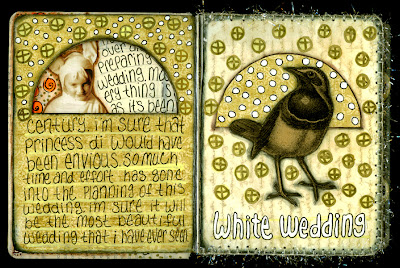 over and
preparing
wedding. may
ery thing is
as its been
century. i'm sure that
princess di would have
been envious so much
time and effort has gone
into the planning of this
wedding. im sure it will
be the most beautiful
wedding that i have ever seen
White Wedding